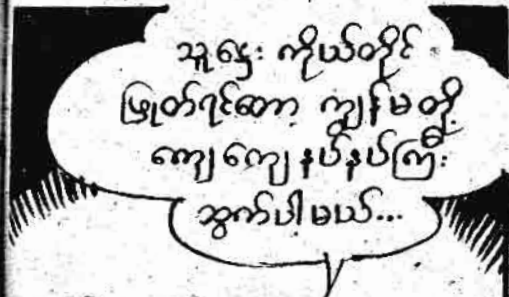 သူဌေး ကိုယ်တိုင်
ဖြုတ်ရင်တော့ ကျွန်မတို့
ကျေကျေနပ်နပ်ကြီး
ထွက်ပါ့မယ်...